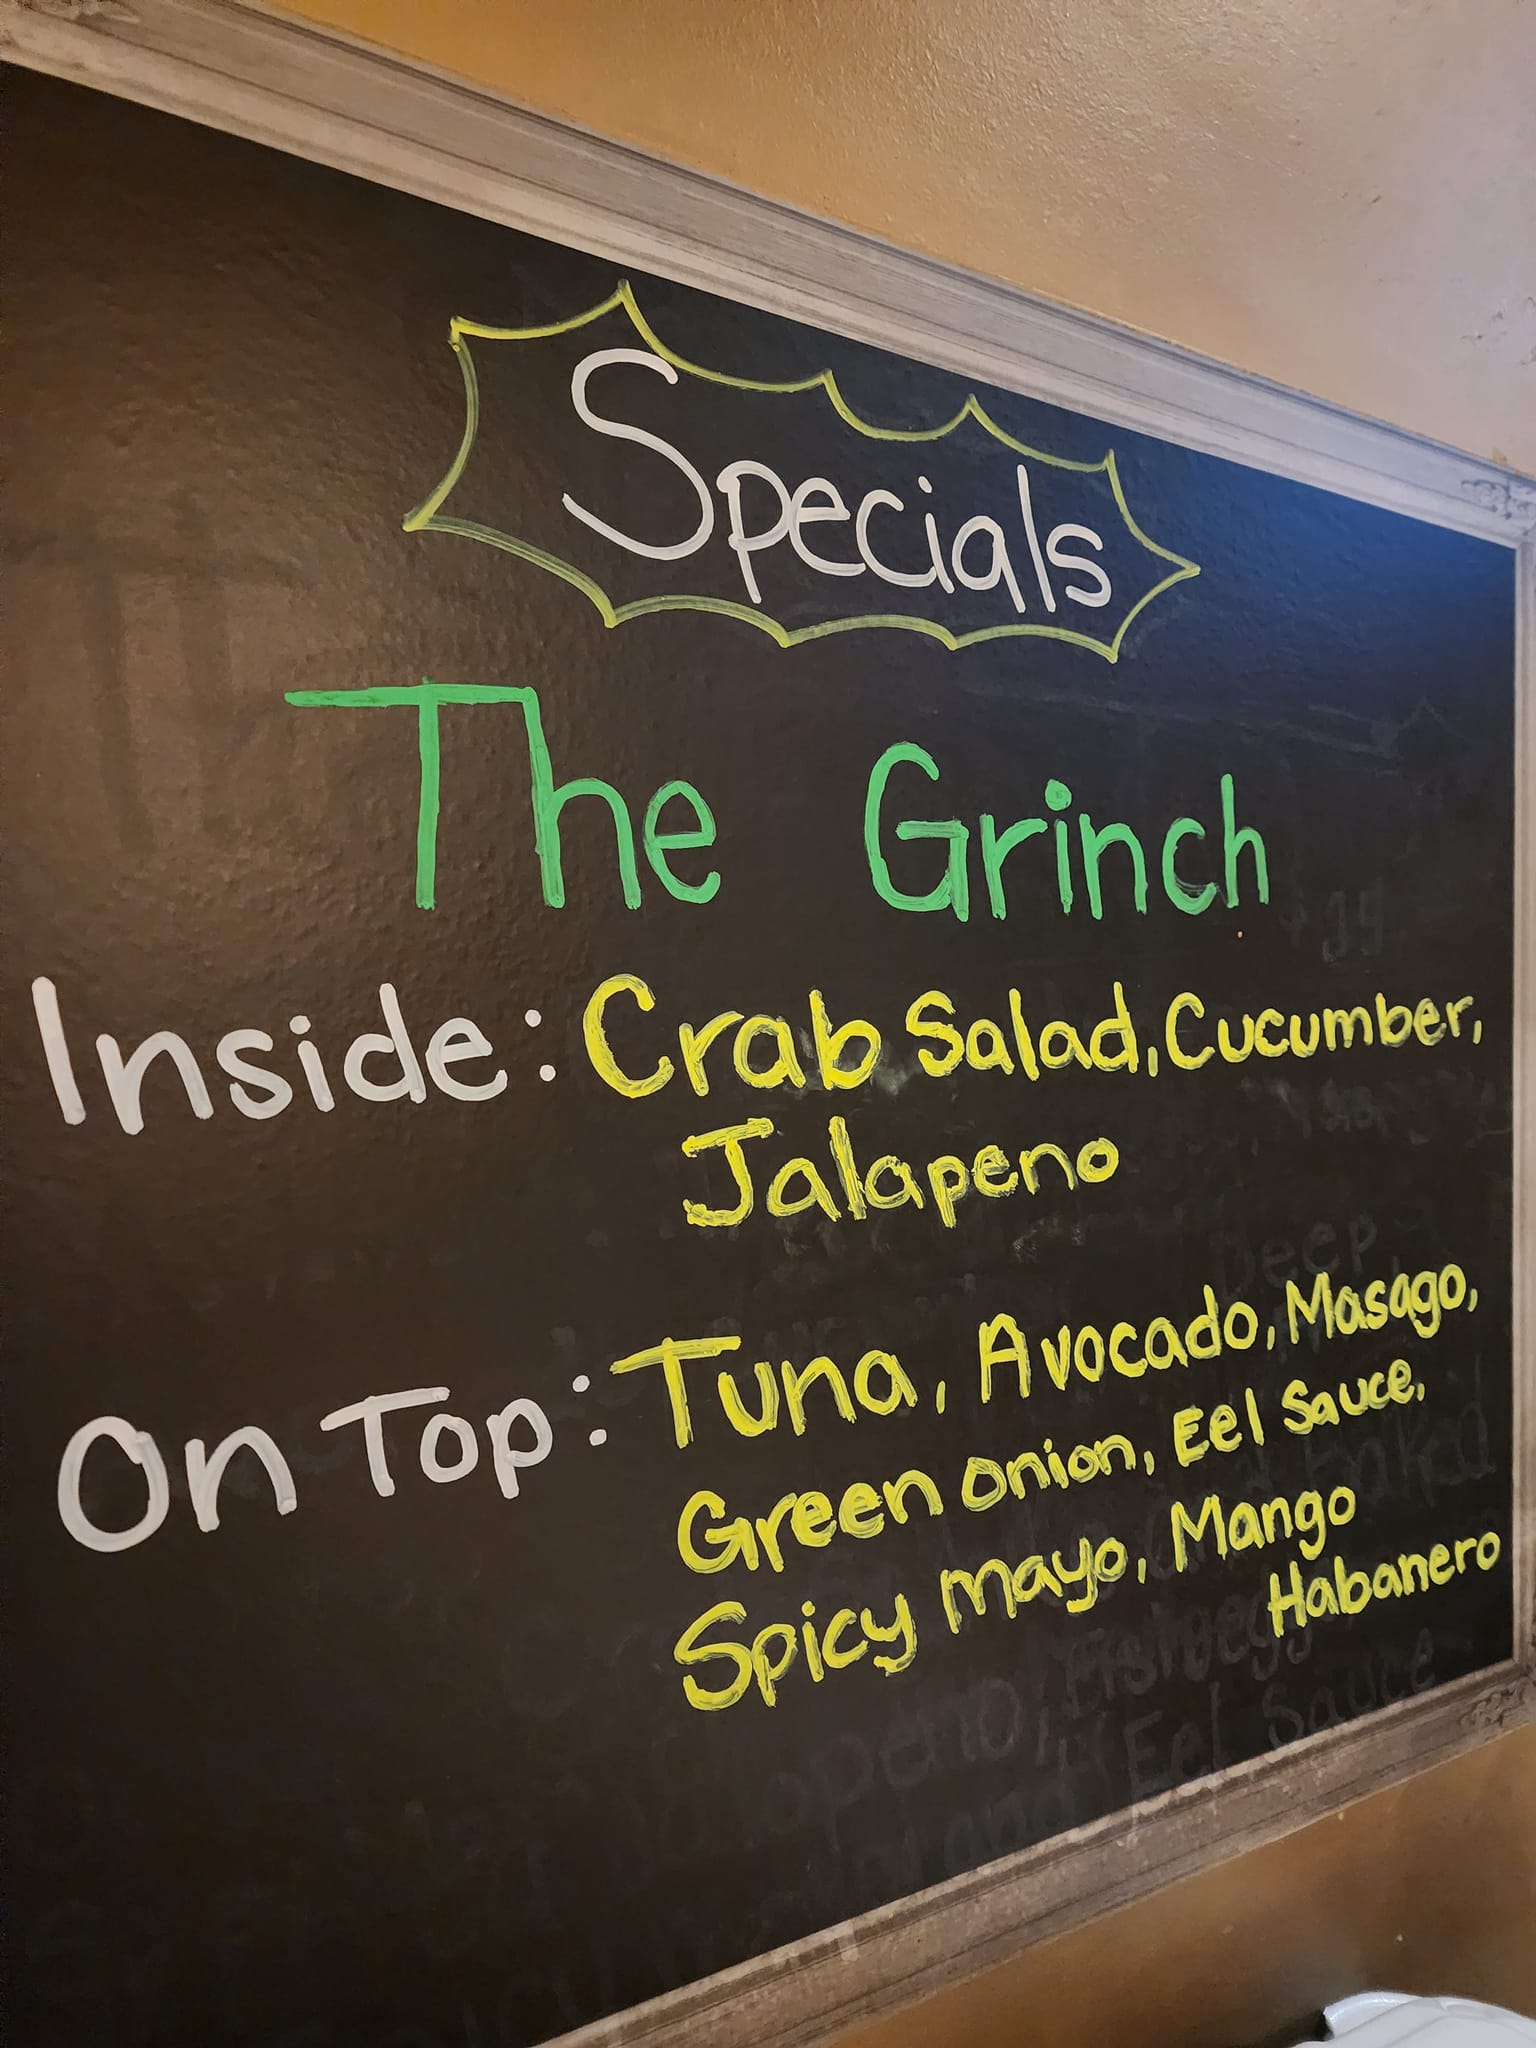 Specials
The Grinch
Inside: Crab Salad, Cucumber,
Jalapeno
On Top: Tuna, Avocado, Masago,
Green onion, Eel Sauce,
Spicy mayo, Mango
Habanero
Deep
Eel Sauce